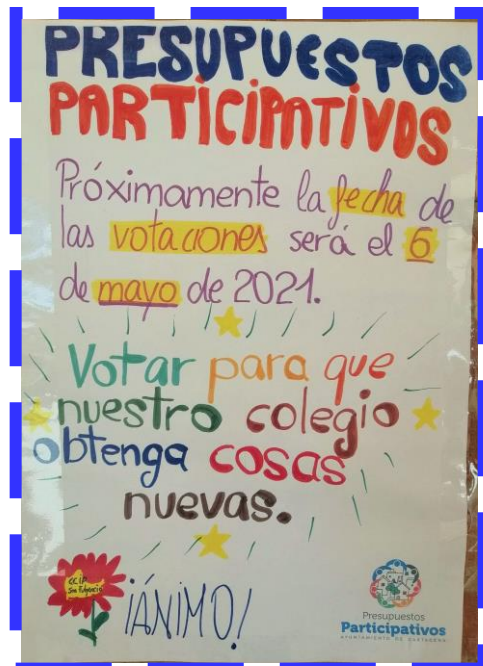 PRESUPUESTOS
PARTICIPATIVOS
Próximamente la fecha de
las votaciones será el 6
de mayo de 2021.
Votar para que
nuestro colegio
obtenga cosas
nuevas.
CEIP
San Fulgencio
¡ÁNIMO!
Presupuestos
Participativos
AYUNTAMIENTO DE CARTAGENA